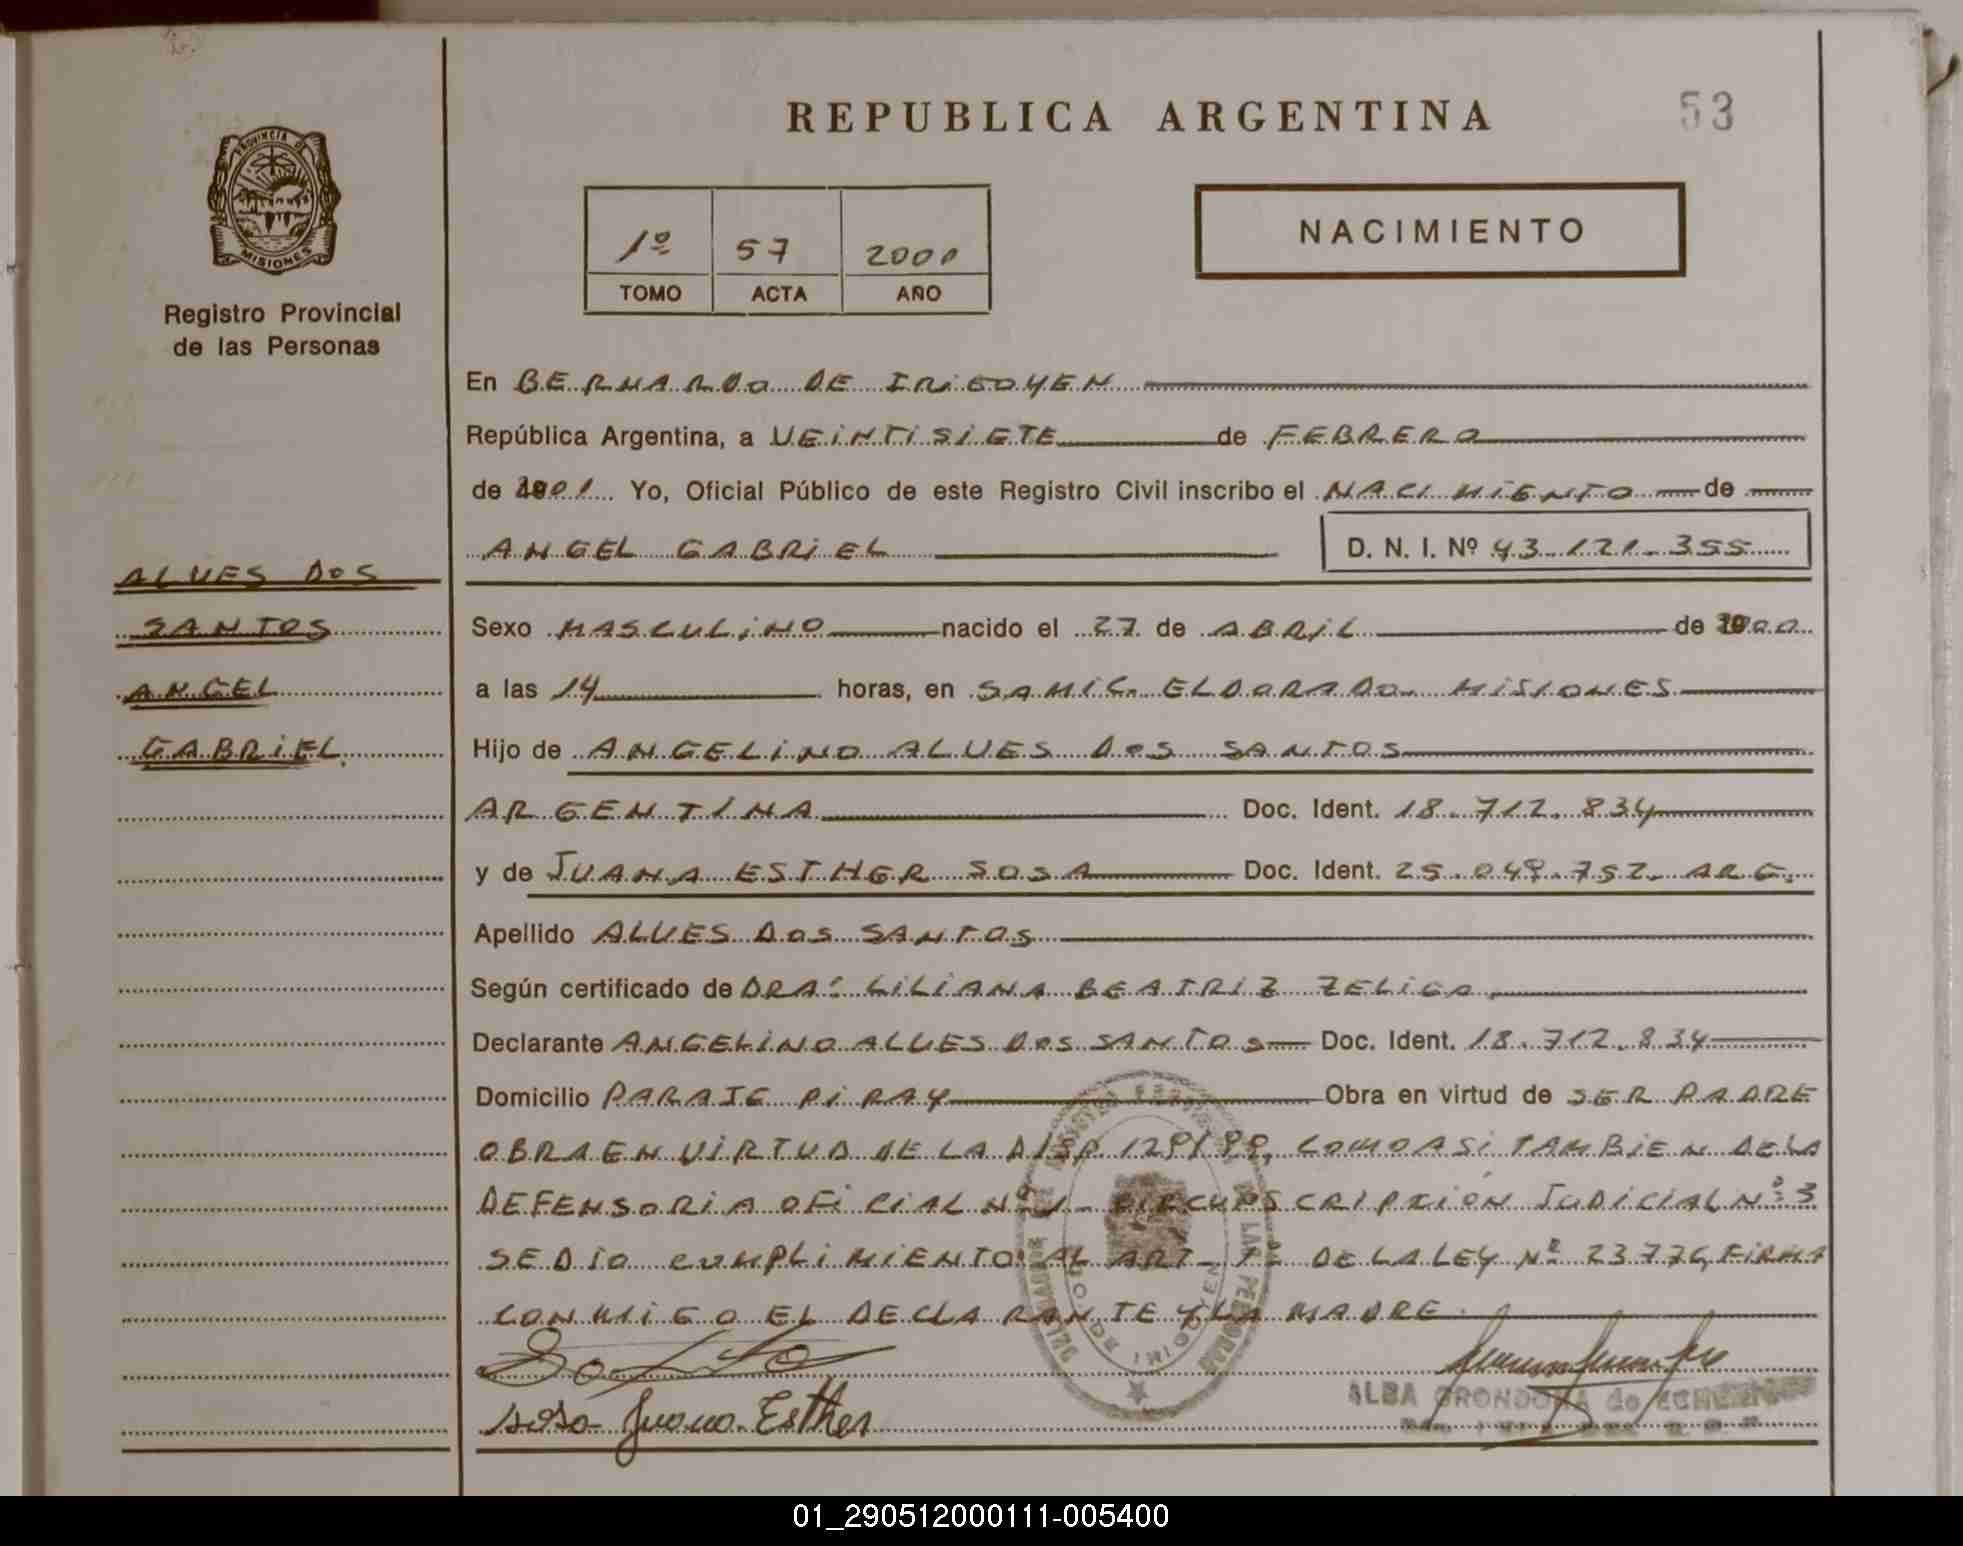 REPUBLICA ARGENTINA
53
PROVINCIA DE
MISIONES
Registro Provincial
de las Personas
1º 57 2000
TOMO ACTA AÑO
NACIMIENTO
En BERNARDO DE IRIGOYEN
República Argentina, a VEINTISIETE de FEBRERO
de 2001 Yo, Oficial Público de este Registro Civil inscribo el NACIMIENTO de
ANGEL GABRIEL D. N. I. Nº 43.121.355
ALVES DOS
SANTOS
ANGEL
GABRIEL
Sexo MASCULINO nacido el 27 de ABRIL de 2000
a las 14 horas, en SAMIC. ELDORADO. MISIONES
Hijo de ANGELINO ALVES DOS SANTOS
ARGENTINA Doc. Ident. 18.712.834
y de JUANA ESTHER SOSA Doc. Ident. 25.049.752. ARG.
Apellido ALVES DOS SANTOS
Según certificado de DRA: LILIANA BEATRIZ ZELIGA
Declarante ANGELINO ALVES DOS SANTOS Doc. Ident. 18.712.834
Domicilio PARAJE PIRAY Obra en virtud de SER PADRE
OBRA EN VIRTUD DE LA DISP 129/99, COMO ASI TAMBIEN DE LA
DEFENSORIA OFICIAL Nº 1 - CIRCUNSCRIPCIÓN JUDICIAL Nº 3
SE DIO CUMPLIMIENTO AL ART - 1º DE LA LEY Nº 23.776, FIRMA
CONMIGO EL DECLARANTE Y LA MADRE.
Sosa Juana Esther
ALBA GRONDONA de
01_290512000111-005400